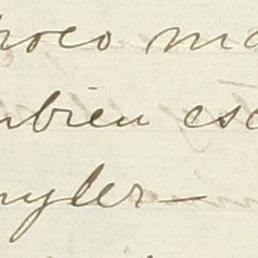 roco ma
mbien esc
nyler —